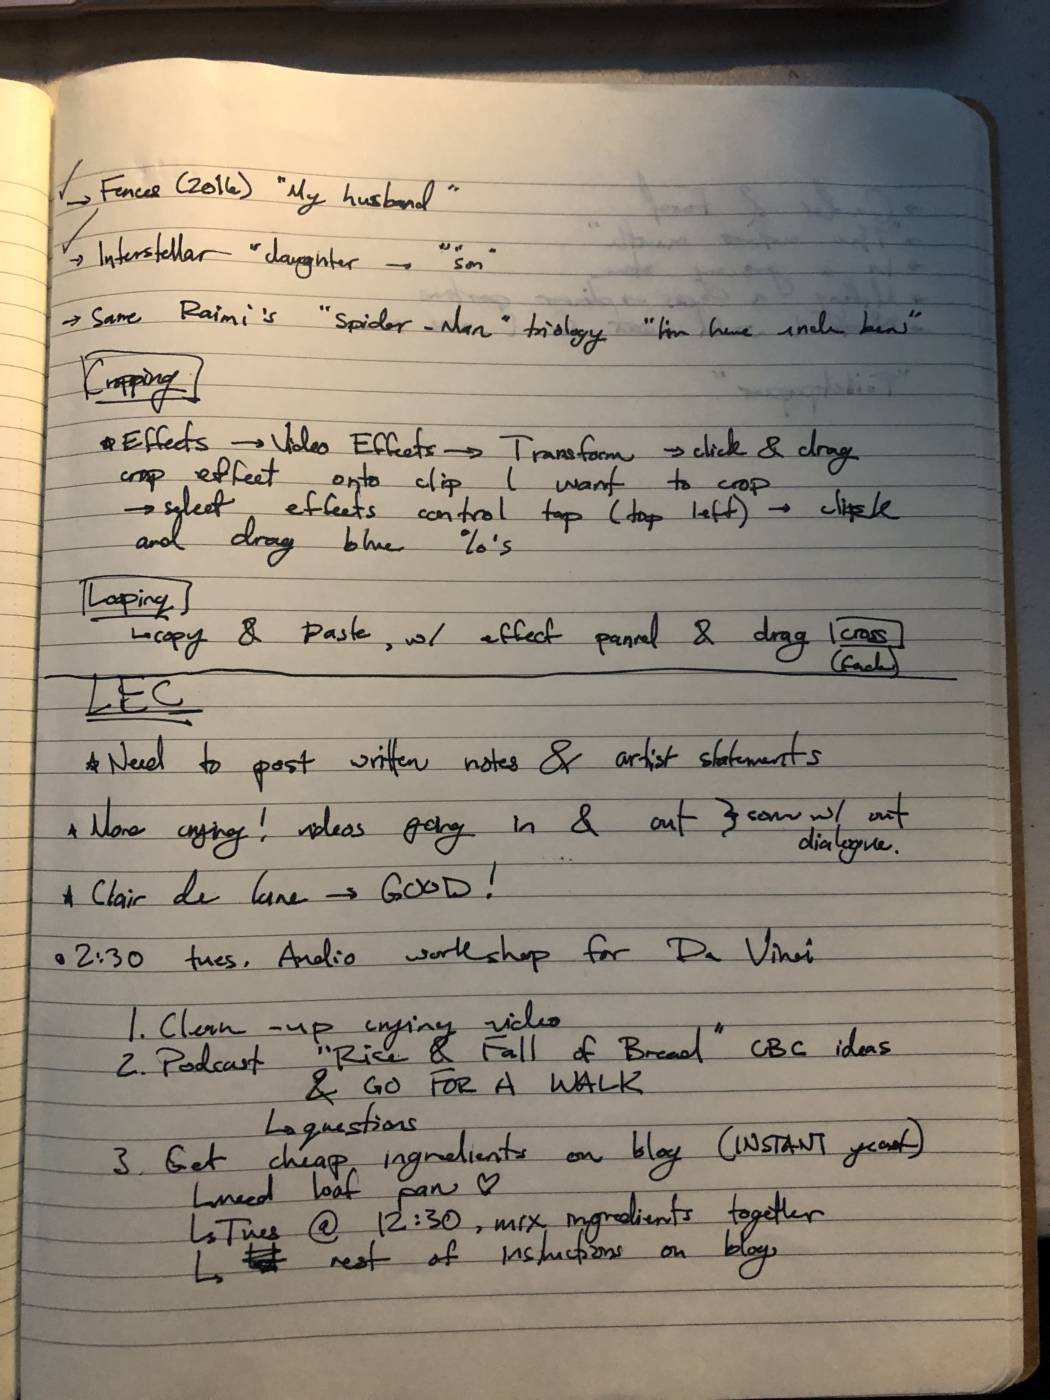 → Fences (2016) "My husband"
→ Interstellar "daughter → "son"
→ Same Raimi's "Spider-Man" triology "I'm here uncle ben"
Cropping
* Effects → Video Effects → Transform → click & drag
crop effect onto clip I want to crop
→ select effects control tap (top left) → click
and drag blue %'s
Looping
↳ copy & paste, w/ effect pannel & drag cross
(fade)
LEC
* Need to post written notes & artist statements
* More crying! videos going in & out } some w/ out
dialogue.
* Clair de lune → GOOD!
• 2:30 tues. Audio workshop for Da Vinci
1. Clean-up crying video
2. Podcast "Rise & Fall of Bread" CBC ideas
& GO FOR A WALK
↳ questions
3. Get cheap ingredients on blog (INSTANT yeast)
↳ need loaf pan ♡
↳ Tues @ 12:30, mix ingredients together
↳ rest of instructions on blog